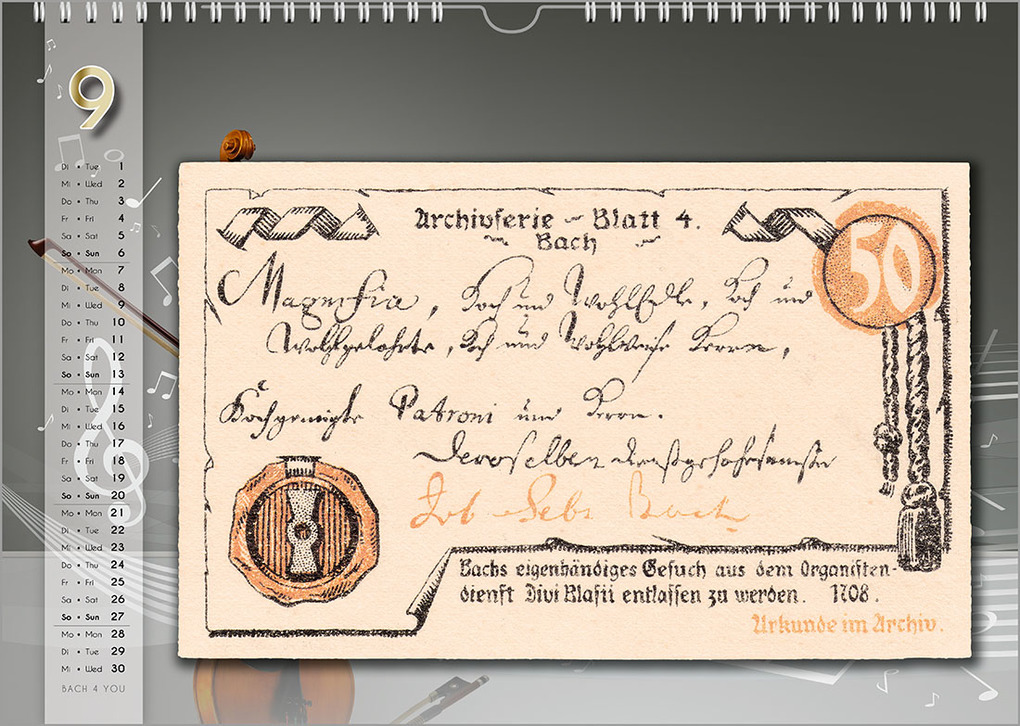 9
Di • Tue 1
Mi • Wed 2
Do • Thu 3
Fr • Fri 4
Sa • Sat 5
So • Sun 6
Mo • Mon 7
Di • Tue 8
Mi • Wed 9
Do • Thu 10
Fr • Fri 11
Sa • Sat 12
So • Sun 13
Mo • Mon 14
Di • Tue 15
Mi • Wed 16
Do • Thu 17
Fr • Fri 18
Sa • Sat 19
So • Sun 20
Mo • Mon 21
Di • Tue 22
Mi • Wed 23
Do • Thu 24
Fr • Fri 25
Sa • Sat 26
So • Sun 27
Mo • Mon 28
Di • Tue 29
Mi • Wed 30
BACH 4 YOU
Archivserie - Blatt 4.
Bach
50
Magnifici, Hoch und WohlEdle, Hoch und
Wohlgelahrte, Hoch und Wohlweise Herren,
Hochgeneigte Patroni und Herren.
Deroselben dienstgehorsamster
Joh Sebr Bach
Bachs eigenhändiges Gesuch aus dem Organisten-
dienst Divi Blasii entlassen zu werden. 1708.
Urkunde im Archiv.